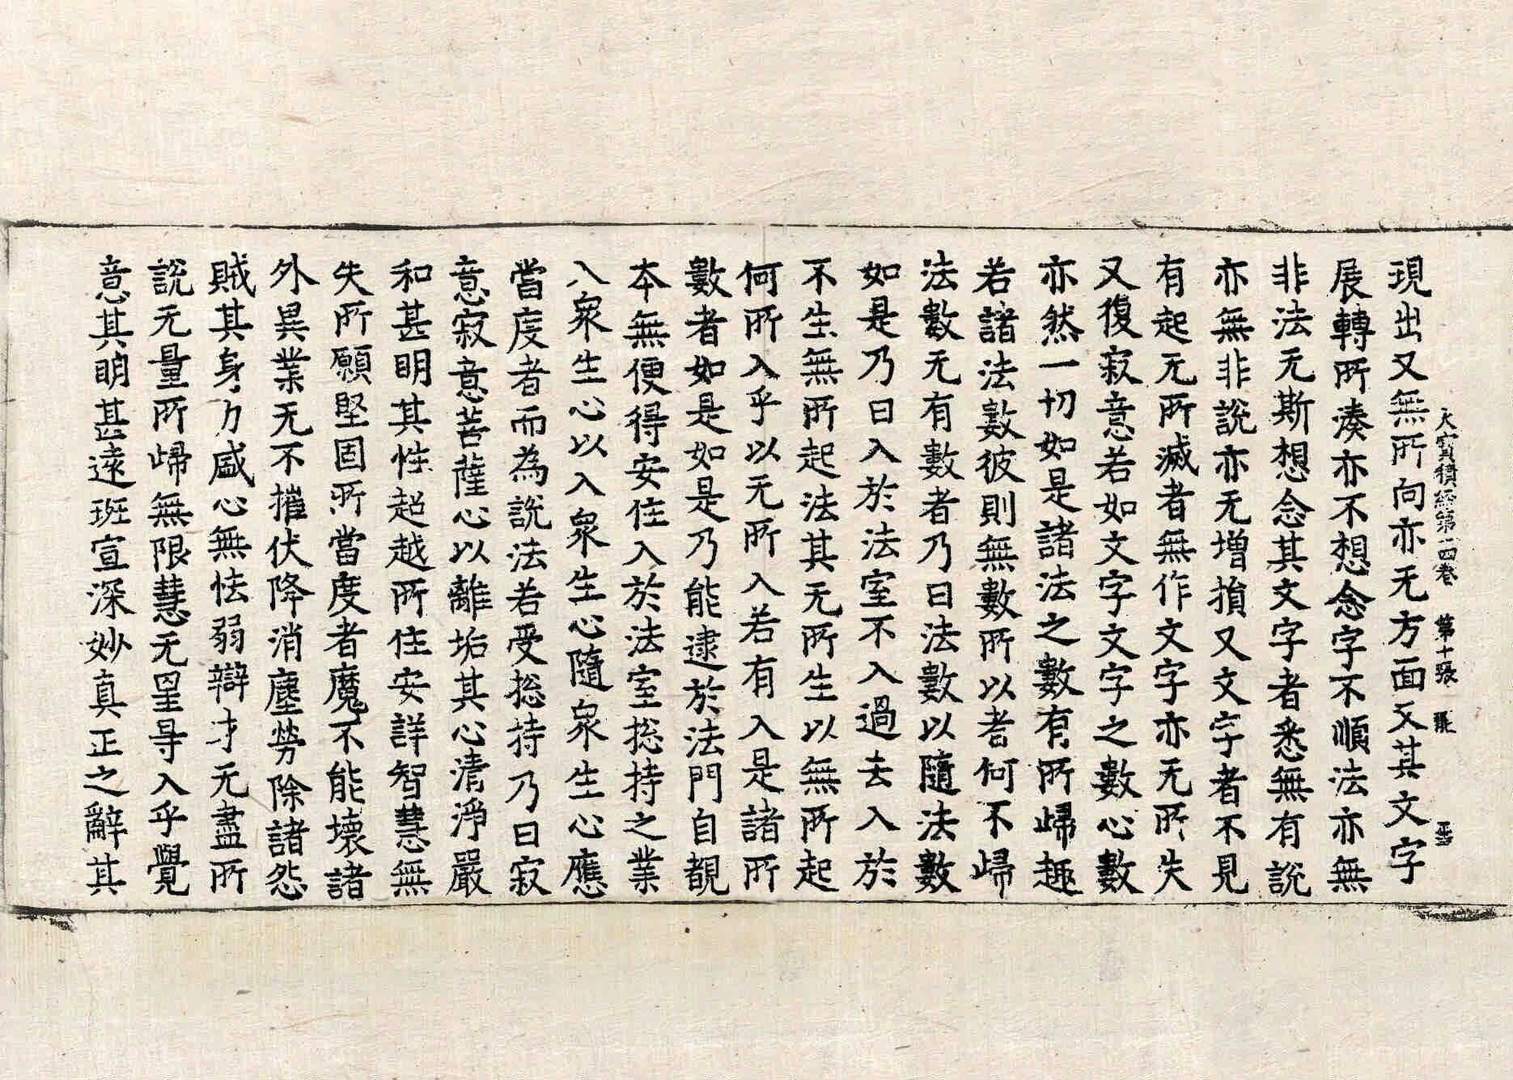 大寶積經第十四卷 第十張
現出又無所向亦无方面又其文字
展轉所湊亦不想念字不順法亦無
非法无斯想念其文字者悉無有說
亦無非說亦无增損又文字者不見
有起无所滅者無作文字亦无所失
又復寂意若如文字文字之數心數
亦然一切如是諸法之數有所歸趣
若諸法數彼則無數所以者何不歸
法數无有數者乃曰法數以隨法數
如是乃曰入於法室不入過去入於
不生無所起法其无所生以無所起
何所入乎以无所入若有入是諸所
數者如是如是乃能逮於法門自覩
本無便得安住入於法室捴持之業
入衆生心以入衆生心隨衆生心應
當度者而為說法若受捴持乃曰寂
意寂意菩薩心以離垢其心清淨嚴
和甚明其性超越所住安詳智慧無
失所願堅固所當度者魔不能壞諸
外異業无不摧伏降消塵勞除諸怨
賊其身力盛心無怯弱辯才无盡所
說无量所歸無限慧无罣㝵入乎覺
意其明甚遠班宣深妙真正之辭其